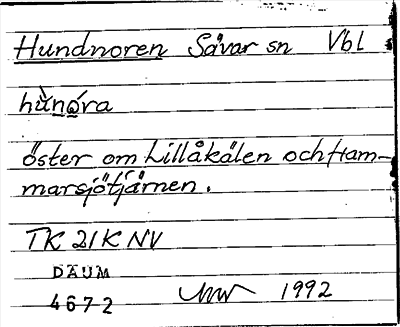 Hundnoren Sävar sn Vbl
hùnǫ́ra
öster om Lillåkälen och Ham-
marsjötjärnen.
TK 21K NV
DAUM
4672 1992